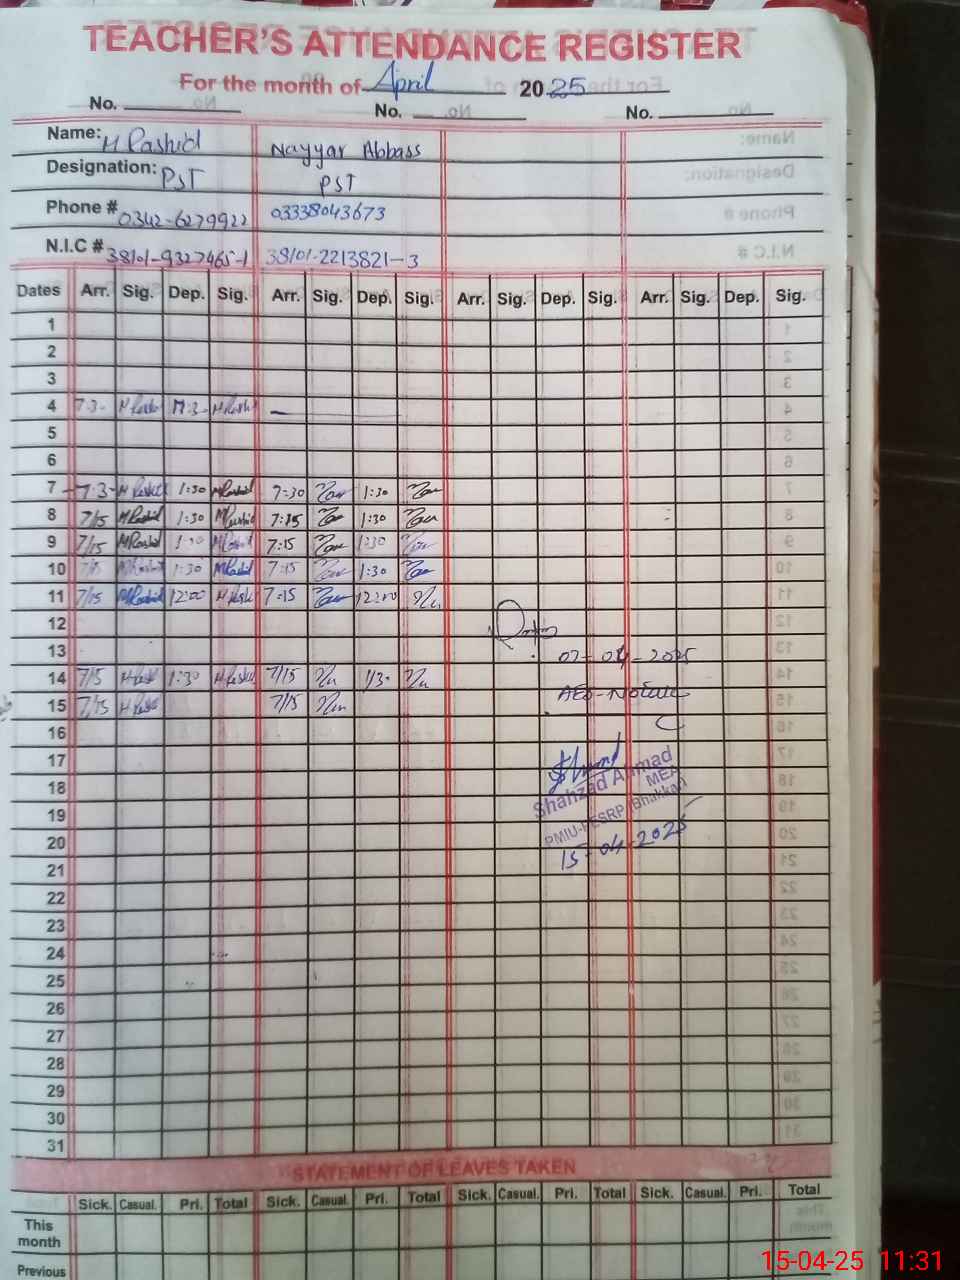 TEACHER'S ATTENDANCE REGISTER
For the month of April 2025
No. No. No.
Name: M Rashid Nayyar Abbass
Designation: PST PST
Phone # 0342-6279922 03338043673
N.I.C # 38101-9327465-1 38101-2213821-3
Dates Arr. Sig. Dep. Sig. Arr. Sig. Dep. Sig. Arr. Sig. Dep. Sig. Arr. Sig. Dep. Sig.
1
2
3
4 7-3- M Rashid M Rashid —
5
6
7 7-3- M Rashid 1:30 M Rashid 7:30 1:30
8 7/15 M Rashid 1:30 M Rashid 7:15 1:30
9 7/15 M Rashid 1:30 M Rashid 7:15 1:30
10 7/15 M Rashid 1:30 M Rashid 7:15 1:30
11 7/15 M Rashid 12:00 M Rashid 7:15 12:00
12
13 07-04-2025
14 7/15 M Rashid 1:30 M Rashid 7/15 1/3-
15 7/15 M Rashid 7/15 AEO-
16
17
18 Shahzad Ahmad
MEA
19 PMIU-PESRP (Bhakkar)
20 15-04-2025
21
22
23
24
25
26
27
28
29
30
31
STATEMENT OF LEAVES TAKEN
Sick. Casual. Pri. Total Sick. Casual. Pri. Total Sick. Casual. Pri. Total Sick. Casual. Pri. Total
This month
Previous
15-04-25 11:31